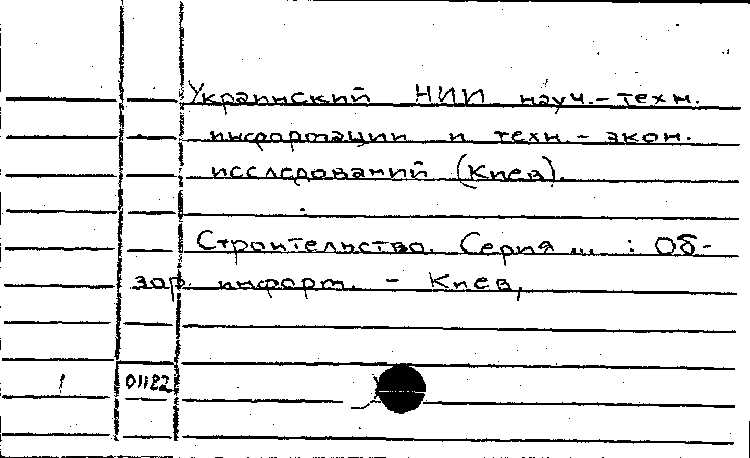 Украинский НИИ науч.-техн.
информации и техн.-экон.
исследований (Киев).
Строительство. Серия ... : Об-
зор. информ. - Киев,
1 01182